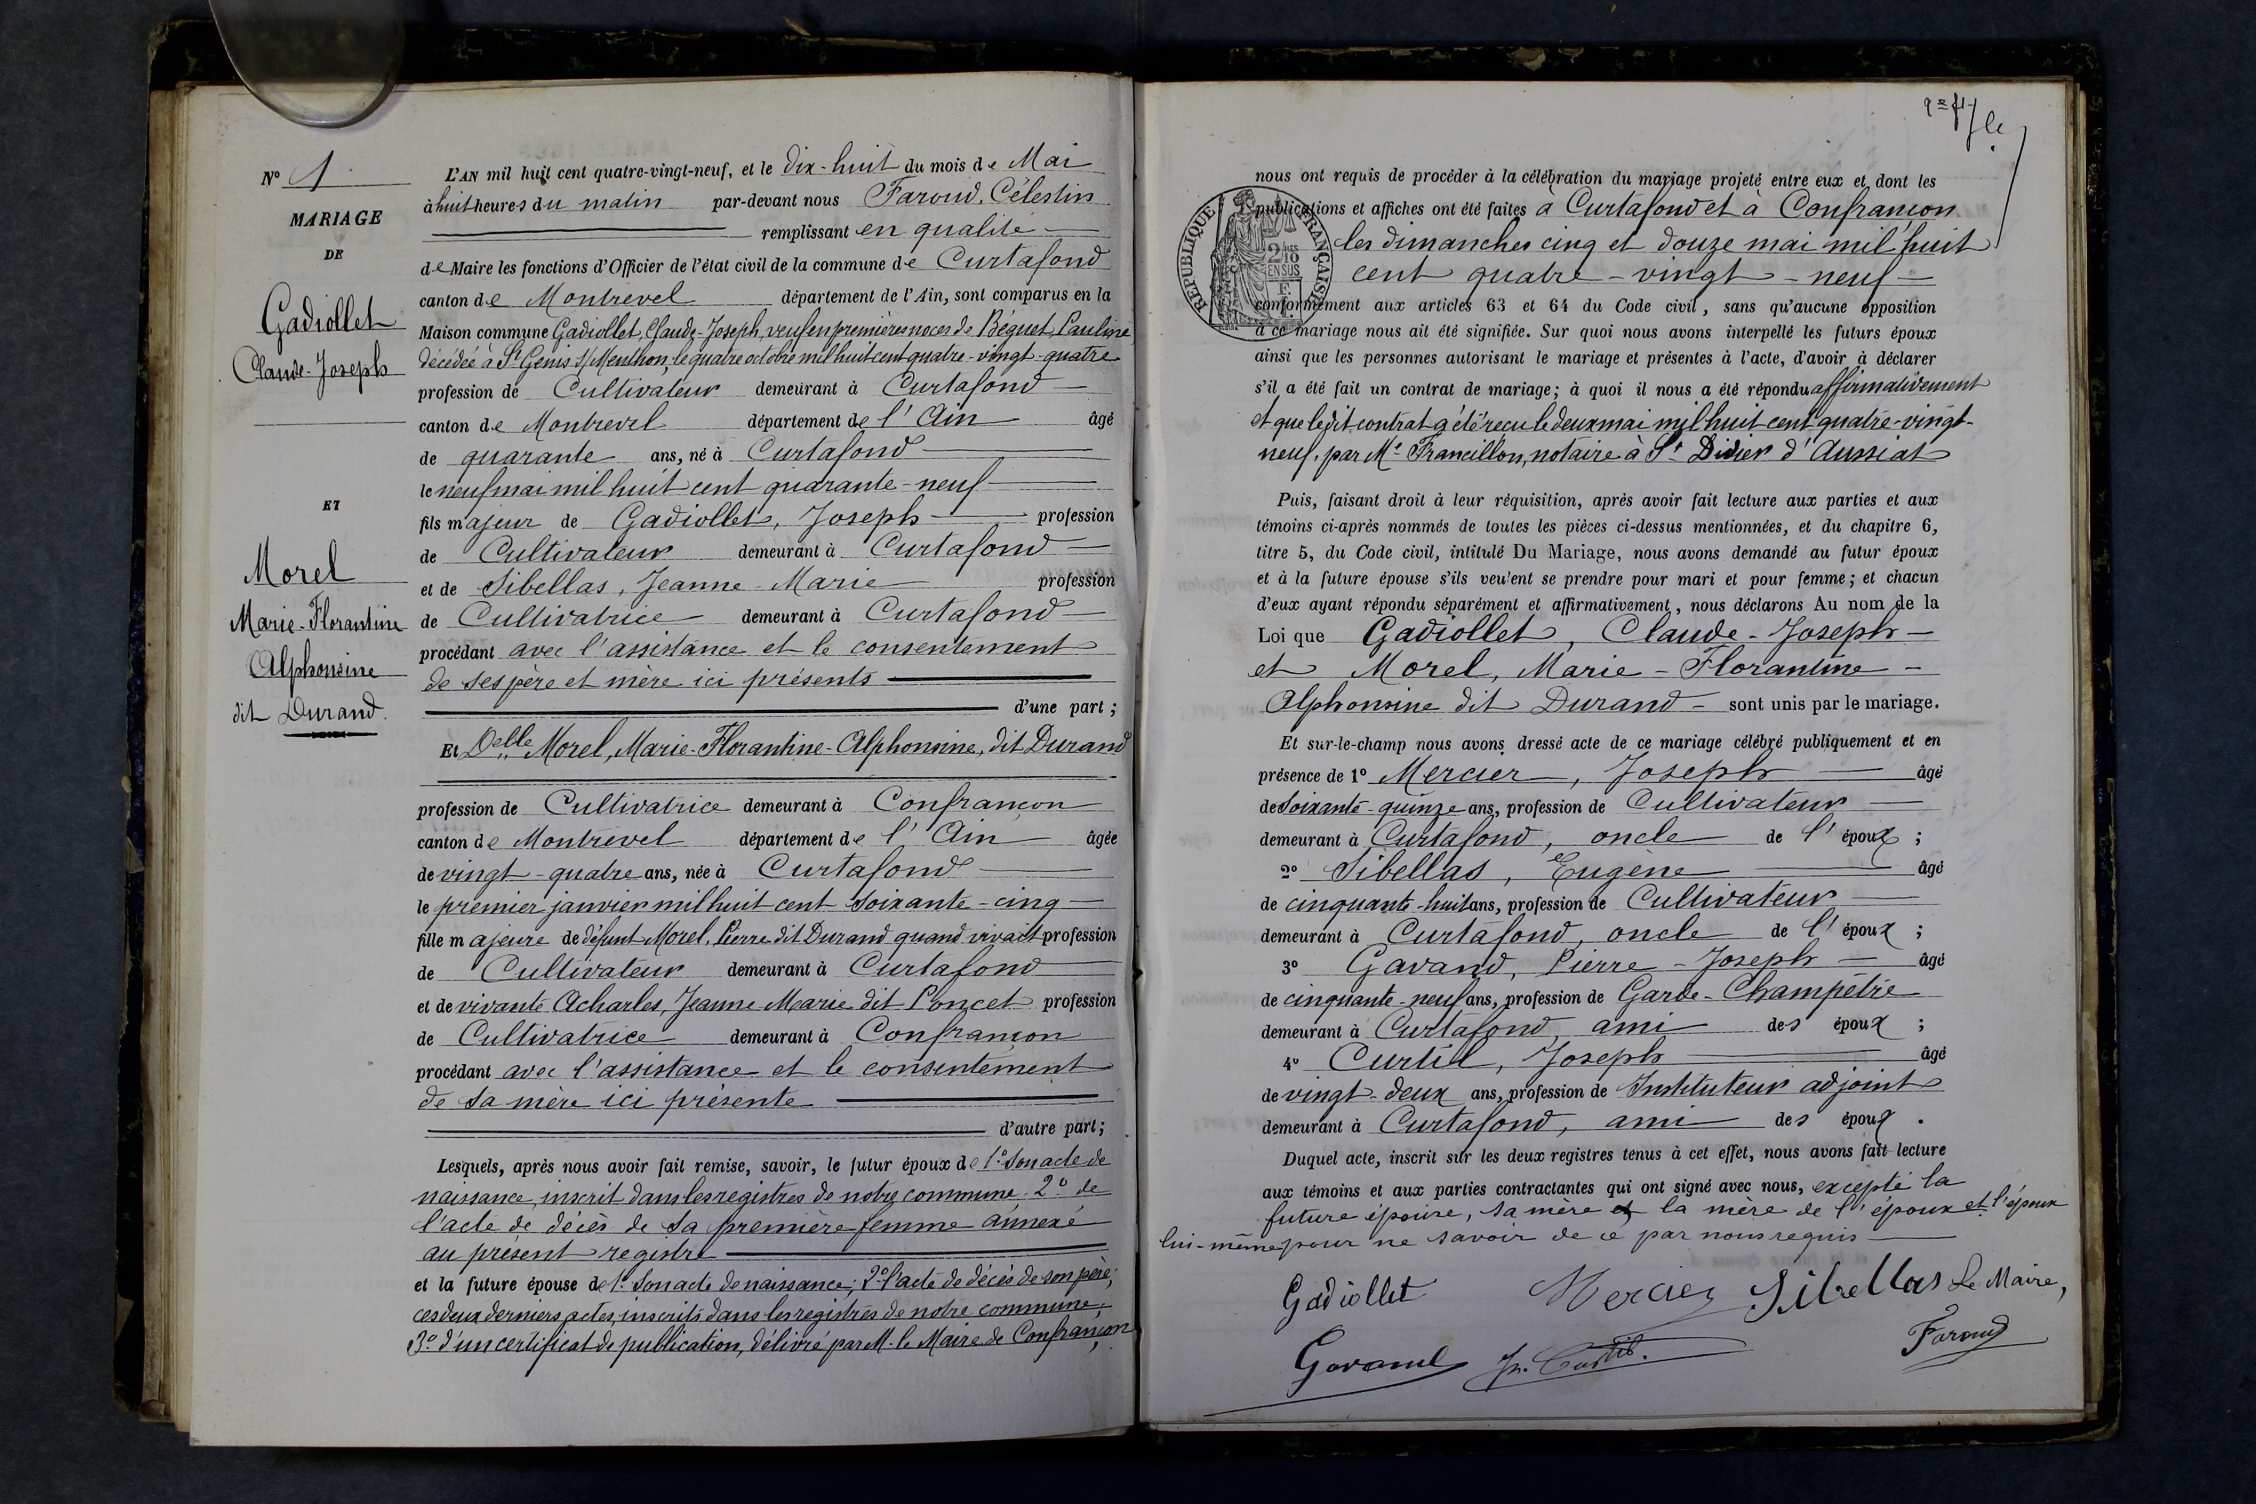 N° 1
MARIAGE
DE
Gadiollet
Claude-Joseph
ET
Morel
Marie-Florantine
Alphonsine
dit Durand.
L'AN mil huit cent quatre-vingt-neuf, et le dix-huit du mois de Mai
à huit heures du matin par-devant nous Faroud, Célestin
remplissant en qualité
de Maire les fonctions d'Officier de l'état civil de la commune de Curtafond
canton de Montrevel département de l'Ain, sont comparus en la
Maison commune Gadiollet, Claude-Joseph, veuf en premières noces de Béguet, Pauline
décédée à St Genis s/ Menthon, le quatre octobre mil huit cent quatre-vingt-quatre
profession de Cultivateur demeurant à Curtafond
canton de Montrevel département de l'Ain âgé
de quarante ans, né à Curtafond
le neuf mai mil huit cent quarante-neuf
fils majeur de Gadiollet, Joseph profession
de Cultivateur demeurant à Curtafond
et de Sibellas, Jeanne-Marie profession
de Cultivatrice demeurant à Curtafond
procédant avec l'assistance et le consentement
de ses père et mère ici présents
d'une part ;
Et Delle Morel, Marie-Florantine-Alphonsine, dit Durand
profession de Cultivatrice demeurant à Confrançon
canton de Montrevel département de l'Ain âgée
de vingt-quatre ans, née à Curtafond
le premier janvier mil huit cent soixante-cinq
fille majeure de défunt Morel, Pierre dit Durand quand vivait profession
de Cultivateur demeurant à Curtafond
et de vivante Acharles, Jeanne Marie dit Poncet profession
de Cultivatrice demeurant à Confrançon
procédant avec l'assistance et le consentement
de sa mère ici présente
d'autre part ;
Lesquels, après nous avoir fait remise, savoir, le futur époux de 1° son acte de
naissance, inscrit dans les registres de notre commune. 2° de
l'acte de décès de sa première femme annexé
au présent registre
et la future épouse de 1° son acte de naissance; 2° l'acte de décès de son père;
ces deux derniers actes, inscrits dans les registres de notre commune;
3° d'un certificat de publication, délivré par M. le Maire de Confrançon,
nous ont requis de procéder à la célébration du mariage projeté entre eux et dont les
publications et affiches ont été faites à Curtafond et à Confrançon
les dimanches cinq et douze mai mil huit
cent quatre-vingt-neuf
RÉPUBLIQUE FRANÇAISE
conformément aux articles 63 et 64 du Code civil, sans qu'aucune opposition
à ce mariage nous ait été signifiée. Sur quoi nous avons interpellé les futurs époux
ainsi que les personnes autorisant le mariage et présentes à l'acte, d'avoir à déclarer
s'il a été fait un contrat de mariage; à quoi il nous a été répondu affirmativement
et que ledit contrat a été reçu le deux mai mil huit cent quatre-vingt-
neuf, par Me Francillon, notaire à St Didier d'Aussiat
Puis, faisant droit à leur réquisition, après avoir fait lecture aux parties et aux
témoins ci-après nommés de toutes les pièces ci-dessus mentionnées, et du chapitre 6,
titre 5, du Code civil, intitulé Du Mariage, nous avons demandé au futur époux
et à la future épouse s'ils veulent se prendre pour mari et pour femme; et chacun
d'eux ayant répondu séparément et affirmativement, nous déclarons Au nom de la
Loi que Gadiollet, Claude-Joseph
et Morel, Marie-Florantine-
Alphonsine dit Durand sont unis par le mariage.
Et sur-le-champ nous avons dressé acte de ce mariage célébré publiquement et en
présence de 1° Mercier, Joseph âgé
de soixante-quinze ans, profession de Cultivateur
demeurant à Curtafond, oncle de l'époux ;
2° Sibellas, Eugène âgé
de cinquante-huit ans, profession de Cultivateur
demeurant à Curtafond, oncle de l'époux ;
3° Gavand, Pierre-Joseph âgé
de cinquante-neuf ans, profession de Garde-Champêtre
demeurant à Curtafond, ami des époux ;
4° Curtil, Joseph âgé
de vingt-deux ans, profession de Instituteur adjoint
demeurant à Curtafond, ami des époux .
Duquel acte, inscrit sur les deux registres tenus à cet effet, nous avons fait lecture
aux témoins et aux parties contractantes qui ont signé avec nous, excepté la
future épouse, sa mère et la mère de l'époux et l'époux
lui-même pour ne savoir de ce par nous requis
Gadiollet Mercier Sibellas Le Maire,
Gavand Jh. Curtil. Faroud